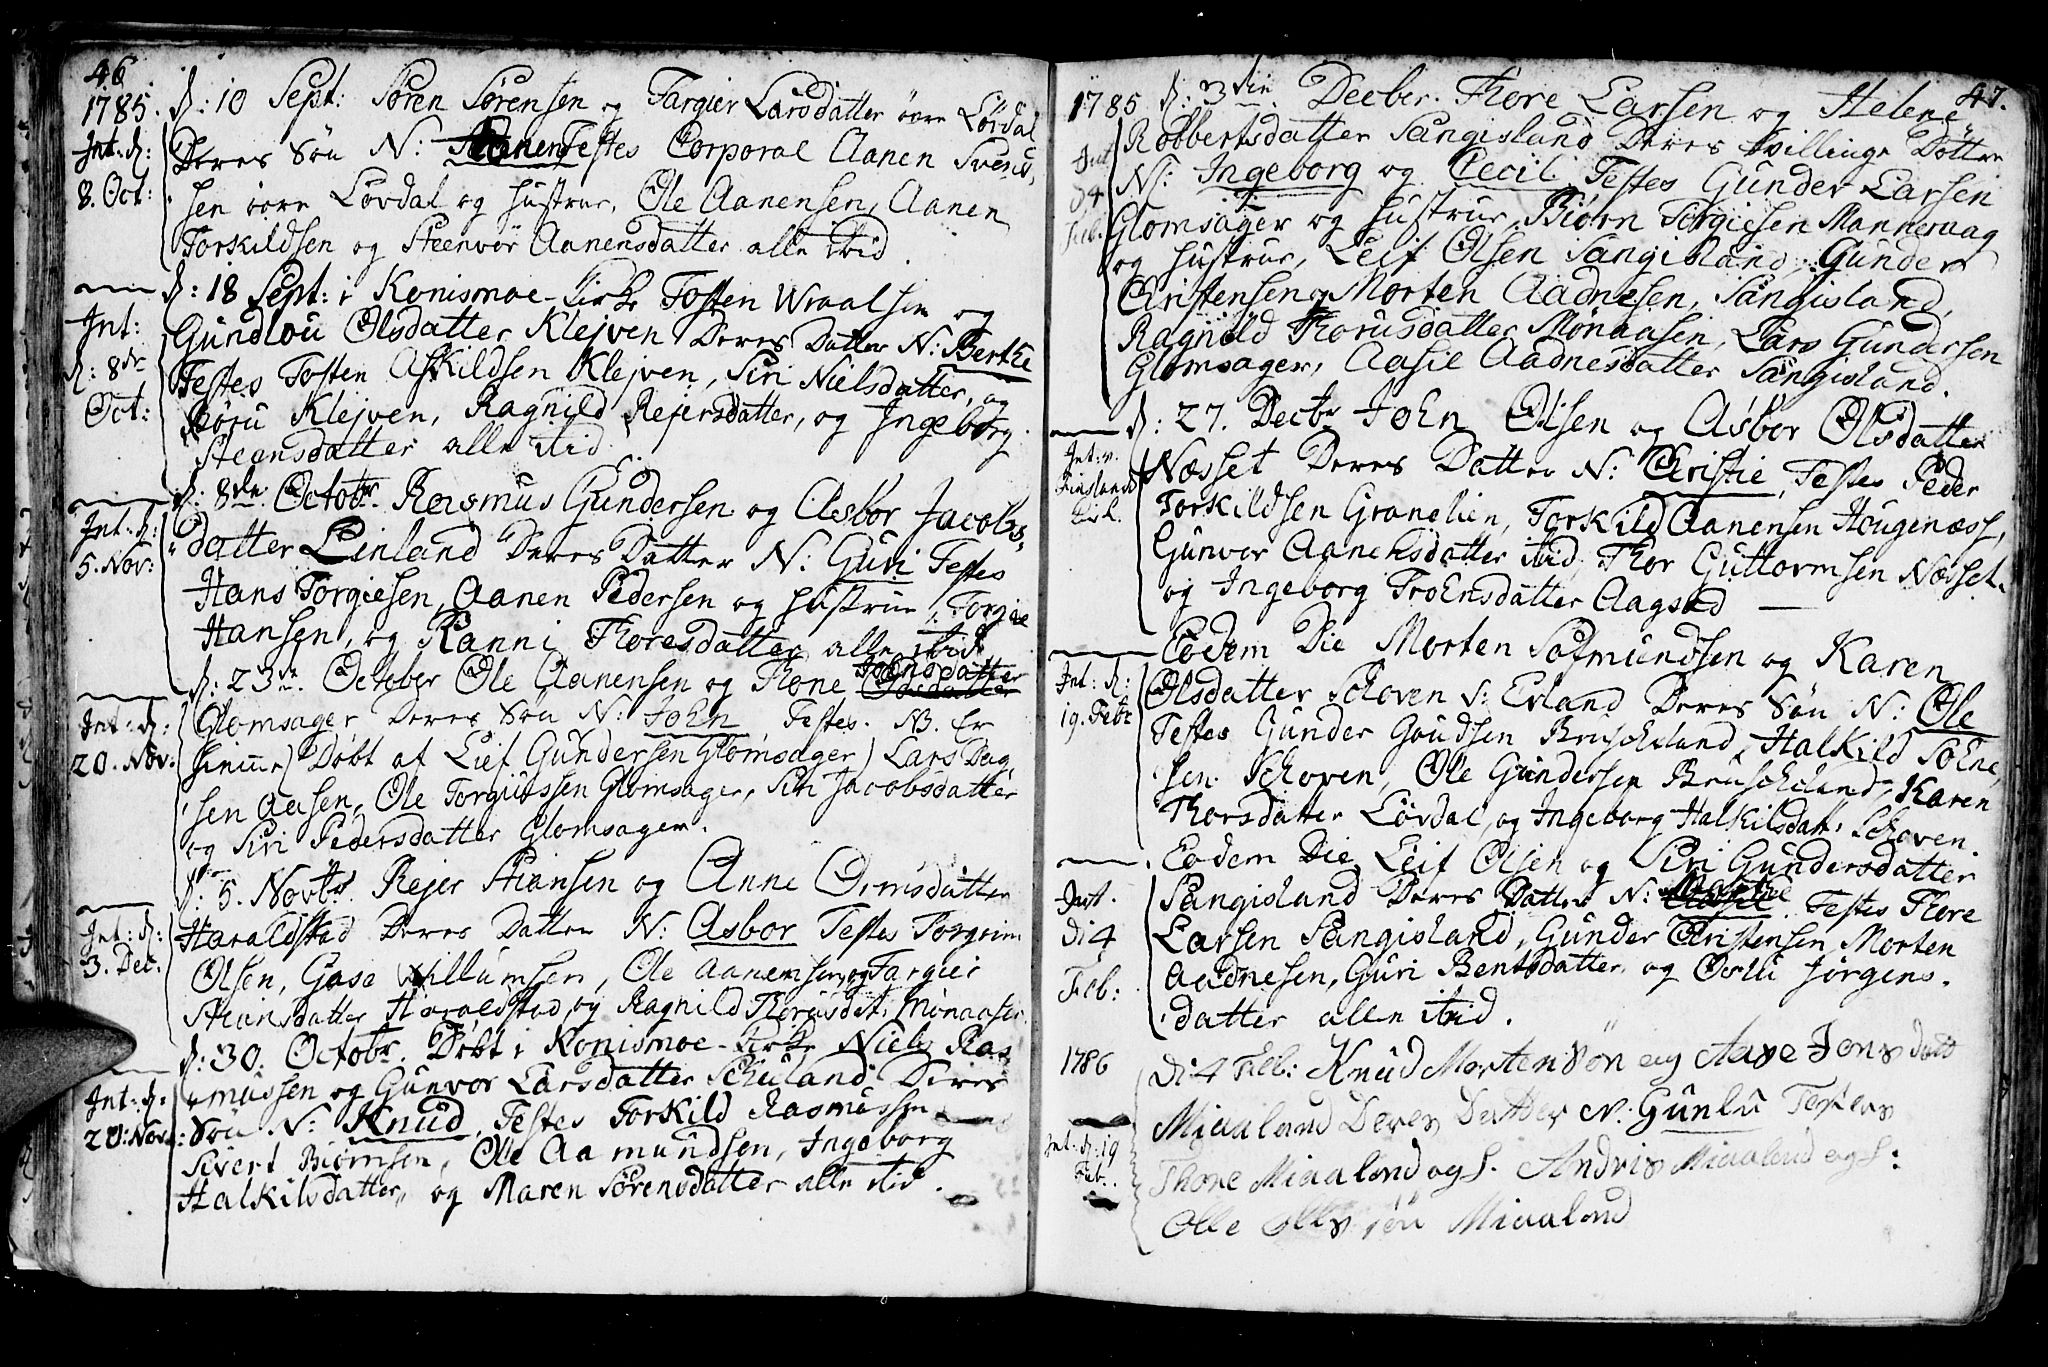 46.
1785. d: 10 Sept: Søren Sørensen og Targier Larsdatter øvre Lövdal
Int: d: Deres Sön N: Aanen Testes Corporal Aanen Svens,
8. Oct: sen øvre Lövdal og Hustrue, Ole Aanensen, Aanen
Torkildsen og Steenvör Aanensdatter alle ibid.
d: 18 Sept: i Konismoe-Kirke Tosten Wraalsen og
Int: Gundlou Olsdatter Klejven Deres Datter N: Berthe
d: 8de Testes Tosten Askildsen Klejven, Siri Nielsdatter, og
Oct: Klejven, Ragnild Rejersdatter, og Ingeborg
Steensdatter alle ibid.
d: 8de Octobr. Rasmus Gundersen og Asbor Jacobs-
Int: d: datter Linland Deres Datter N: Guri Testes
5. Nov: Hans Torgiesen, Aanen Pedersen og Hustrue, Torgie
Hansen, og Ranni Thoresdatter alle ibid
d: 23de October Ole Aanensen og Thone Johnsdatter
Int: d: Glomsager Deres Sön N: John Testes. NB. Er
20. Nov: hiemme) Døbt af Lief Gundersen Glomsager) Lars Dag
sen Aasen, Ole Torgiussen Glomsager, Siri Jacobsdatter
og Siri Pedersdatter Glomsager.
d: 5. Novbr. Rejer Stiansen og Anne Ormsdatter
Int: d: Haraldstad Deres Datter N: Asbor Testes Torgrim
3. Dec. Olsen, Gose Willumsen, Ole Aanensen, og Targier
Stiansdatter Haraldstad, og Ragnild Thorusdat: Mönaasen
d: 30. Octobr. Döbt i Konismoe-Kirke Niels Ras
Int: d: mussen og Gunvor Larsdatter Schuland Deres
20: Nov: Sön N: Knud, Testes Torkild Rasmussen
Sivert Biörnsen, Ole Aamundsen, Ingeborg
Halkilsdatter, og Maren Sörensdatter alle ibid.
47.
1785 d: 3die Decber. Thore Larsen og Helene
Int Robbertsdatter Sangisland Deres tvillinge Döttre
d 4 N: Ingeborg og Cecil Testes Gunder Larsen
Feb. Glomsager og Hustrue, Biörn Torgiesen Mannevaag
og Hustrue, Leif Olsen Sangisland, Gunder
Christensen, Morten Aadnesen, Sangisland,
Ragnild Thorusdatter Mönaasen, Lars Gundersen
Glomsager, Aasie Aadnesdatter Sangisland.
d: 27. Decbr John Olsen og Asbor Olsdatter
Int: v. Næsset Deres Datter N: Christie, Testes Peder
Finslands Torkildsen Granelien, Torkild Aanensen Hougenæss,
Kirk. Gunvor Aanensdatter ibid, Thor Guttormsen Næsset
og Ingeborg Trohnsdatter Aagsted
Eodem Die Morten Salmundsen og Karen
Int: d: Olsdatter Schoven v: Evland Deres Sön N: Ole
19. Febr Testes Gunder Goudsen Bruscheland, Halkild Sohne
sen Schoven, Ole Gundersen Bruscheland, Karen
Thorsdatter Lövdal, og Ingeborg Halkilsdatt: Schoven.
Eodem Die Leif Olsen og Siri Gundersdatter
Int. Sangisland Deres Datter N: Testes Thore
di 4 Larsen Sangisland, Gunder Christensen, Morten
Feb: Aadnesen, Guri Bentsdatter og Jörgens.
datter alle ibid.
1786 di 4 Feb: Knud Morten sön og Aase Jons datt
Miaaland Deres Datter N: Gunlu Testers
Int: d: 19 Thore Miaaland og h. Andris Miaaland og h:
Feb: Olle Olls sön Miaaland